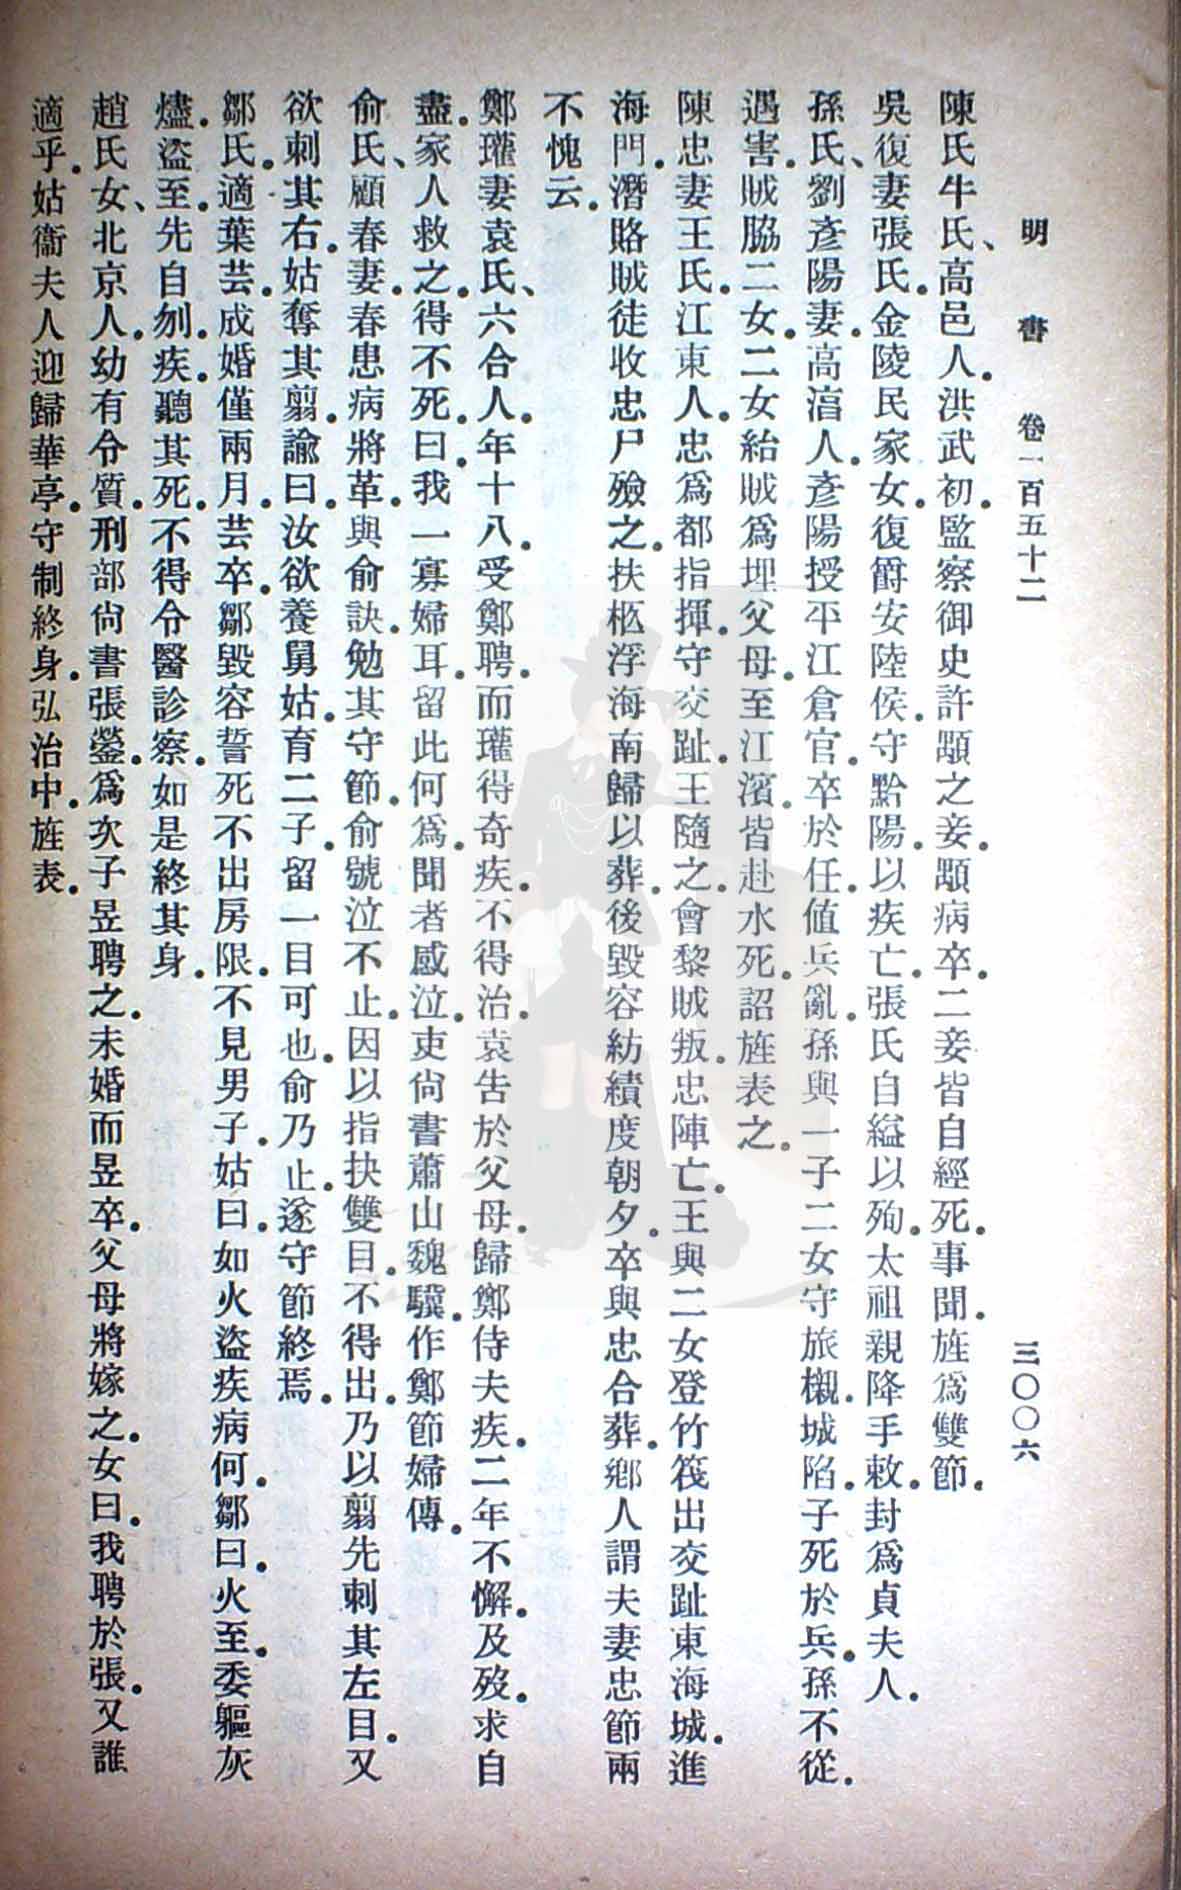 明書 卷一百五十二 三〇〇六
陳氏牛氏、高邑人。洪武初。監察御史許顒之妾。顒病卒。二妾皆自經死。事聞。旌爲雙節。
吳復妻張氏。金陵民家女。復爵安陸侯。守黔陽。以疾亡。張氏自縊以殉。太祖親降手敕。封爲貞夫人。
孫氏、劉彥陽妻。高湻人。彥陽授平江倉官。卒於任。値兵亂。孫與一子二女守旅櫬。城陷。子死於兵。孫不從。
遇害。賊脇二女。二女紿賊爲埋父母。至江濱。皆赴水死。詔旌表之。
陳忠妻王氏。江東人。忠爲都指揮。守交趾。王隨之。會黎賊叛。忠陣亡。王與二女登竹筏。出交趾東海城。進
海門。潛賂賊徒。收忠尸殮之。扶柩浮海南歸以葬。後毀容紡績度朝夕。卒與忠合葬。鄉人謂夫妻忠節兩
不愧云。
鄭瓘妻袁氏、六合人。年十八。受鄭聘。而瓘得奇疾。不得治。袁告於父母。歸鄭侍夫疾。二年不懈。及歿。求自
盡。家人救之。得不死。曰。我一寡婦耳。留此何爲。聞者感泣。吏尙書蕭山魏驥。作鄭節婦傳。
俞氏、顧春妻。春患病將革。與俞訣。勉其守節。俞號泣不止。因以指抉雙目。不得出。乃以翦先刺其左目。又
欲刺其右。姑奪其翦。諭曰。汝欲養舅姑。育二子。留一目可也。俞乃止。遂守節終焉。
鄒氏。適葉芸。成婚僅兩月。芸卒。鄒毀容誓死。不出房限。不見男子。姑曰。如火盜疾病何。鄒曰。火至。委軀灰
燼。盜至。先自刎。疾。聽其死。不得令醫診察。如是終其身。
趙氏女、北京人。幼有令質。刑部尙書張鎣。爲次子昱聘之。未婚而昱卒。父母將嫁之。女曰。我聘於張。又誰
適乎。姑衞夫人迎歸華亭。守制終身。弘治中。旌表。